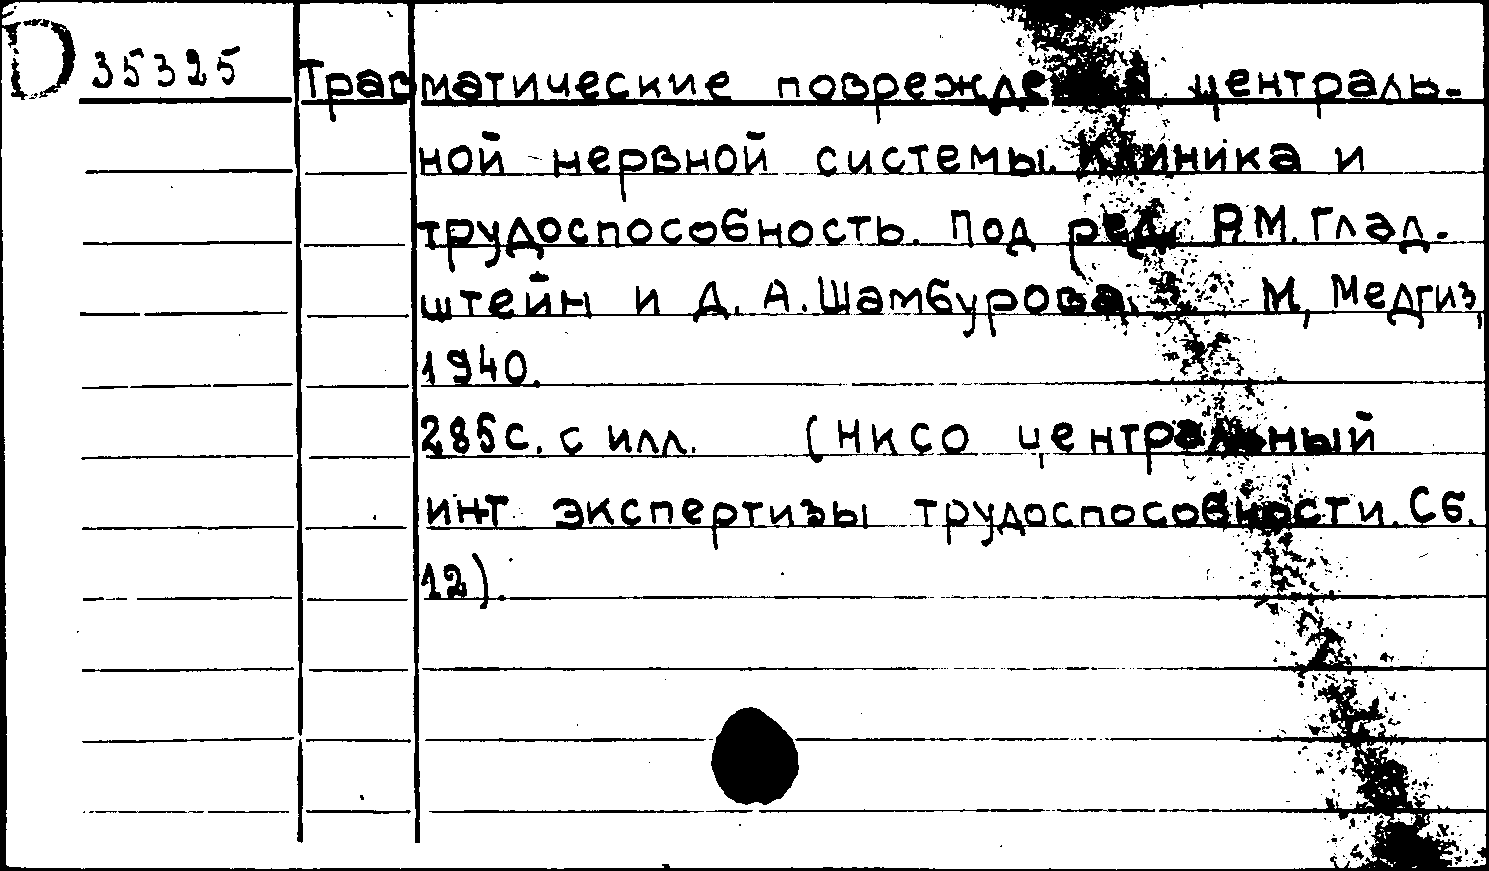 D 35325 Травматические повреждения централь-
ной нервной системы. Клиника и
трудоспособность. Под ред. Р.М. Глад-
штейн и Д. А. Шамбурова. М, Медгиз,
1940.
285с. с илл. (НКСО центральный
ин-т экспертизы трудоспособности. Сб.
12).